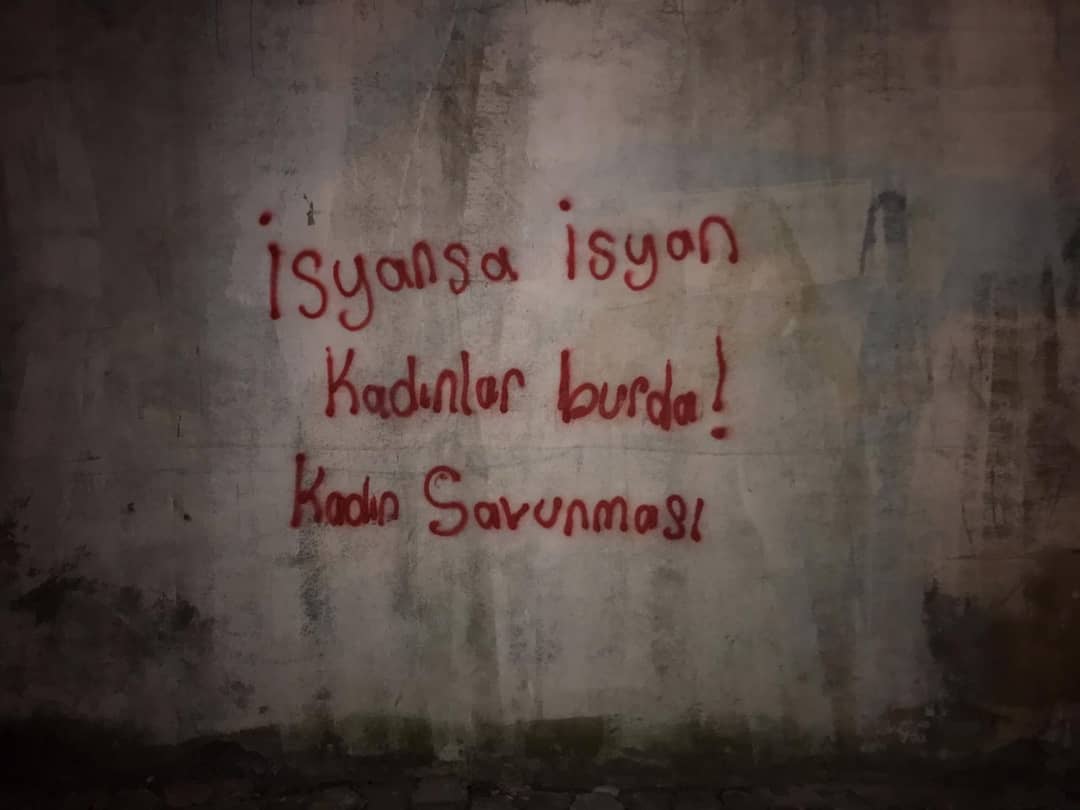 isyansa isyan
Kadınlar burda!
Kadın Savunması